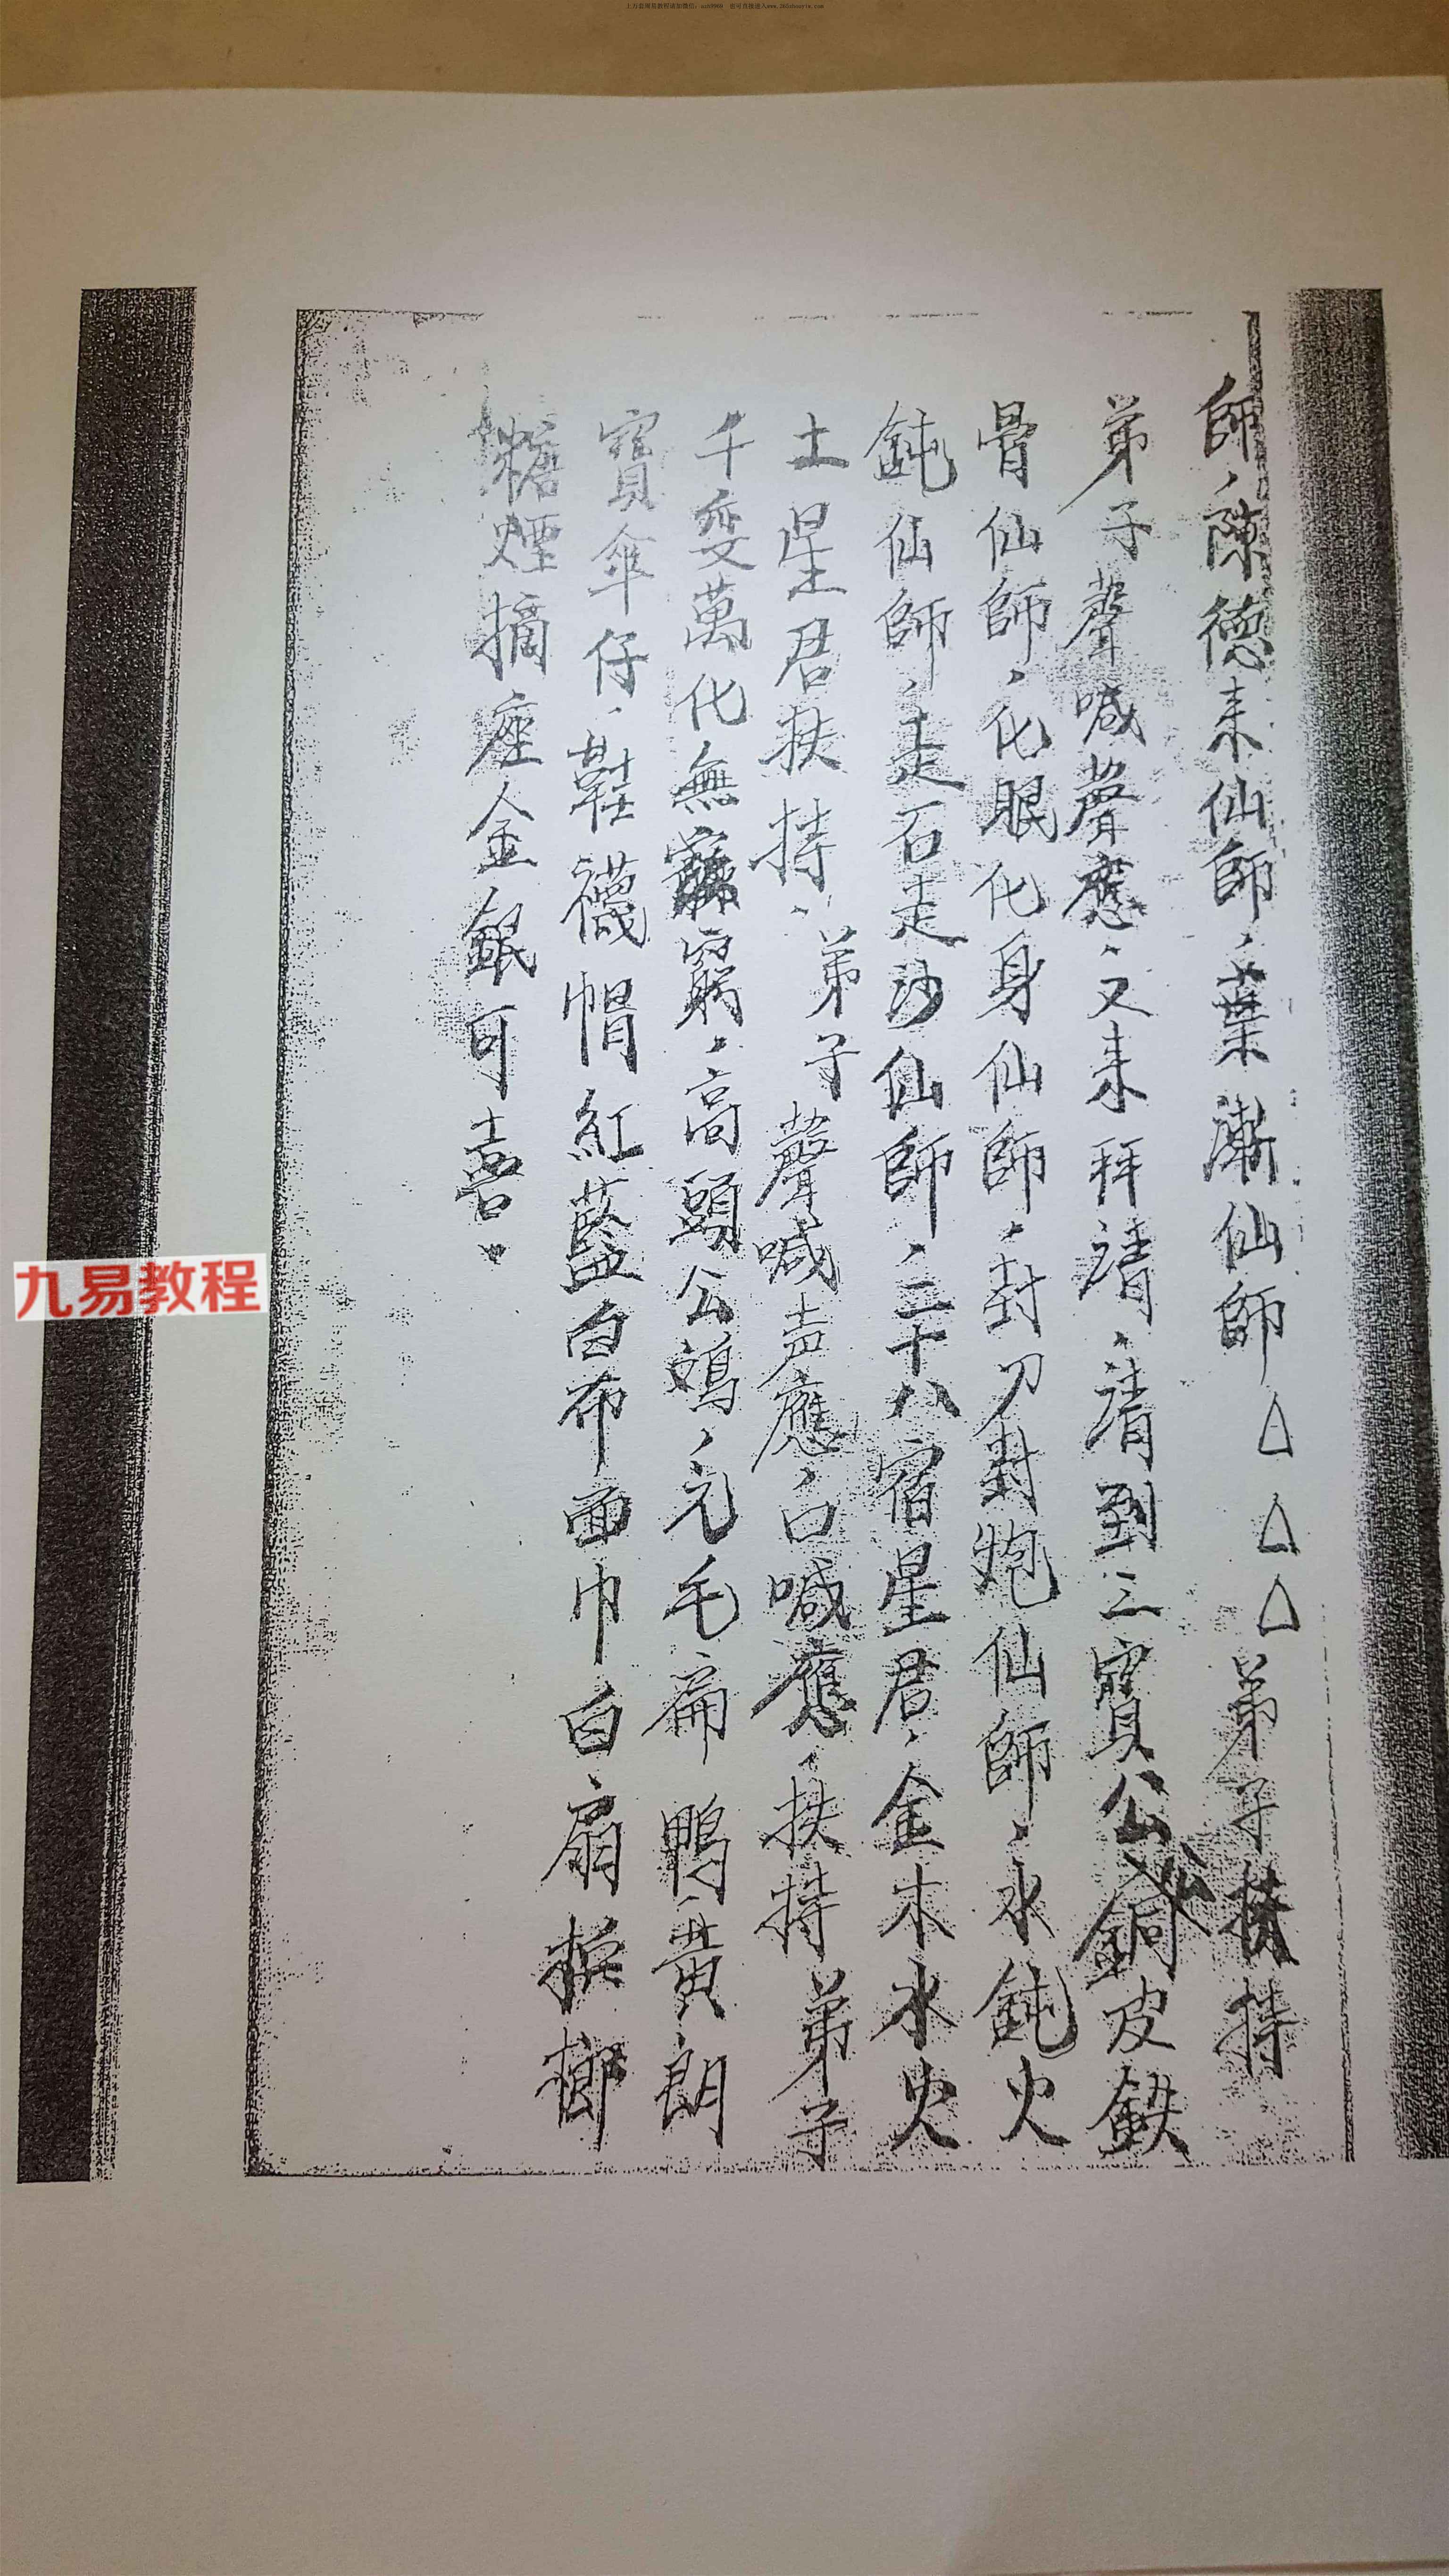 師、陳德來仙師、葉漸仙師△△△弟子扶持
弟子聲喊聲應、又來拜請、請到三寶公銅皮鉄
骨仙師、化眼化身仙師、封刀封炮仙師、水鈍火
鈍仙師、走石走沙仙師、二十八宿星君、金木水火
土星君扶持、弟子聲喊声應、口喊應、扶持弟子
千变萬化無窮、高頭公鴂、元毛扁鴨、黃朗
寶傘仔、鞋襪帽紅藍白布面巾白扇檳榔
糖煙摘座金銀可喜、
九易教程